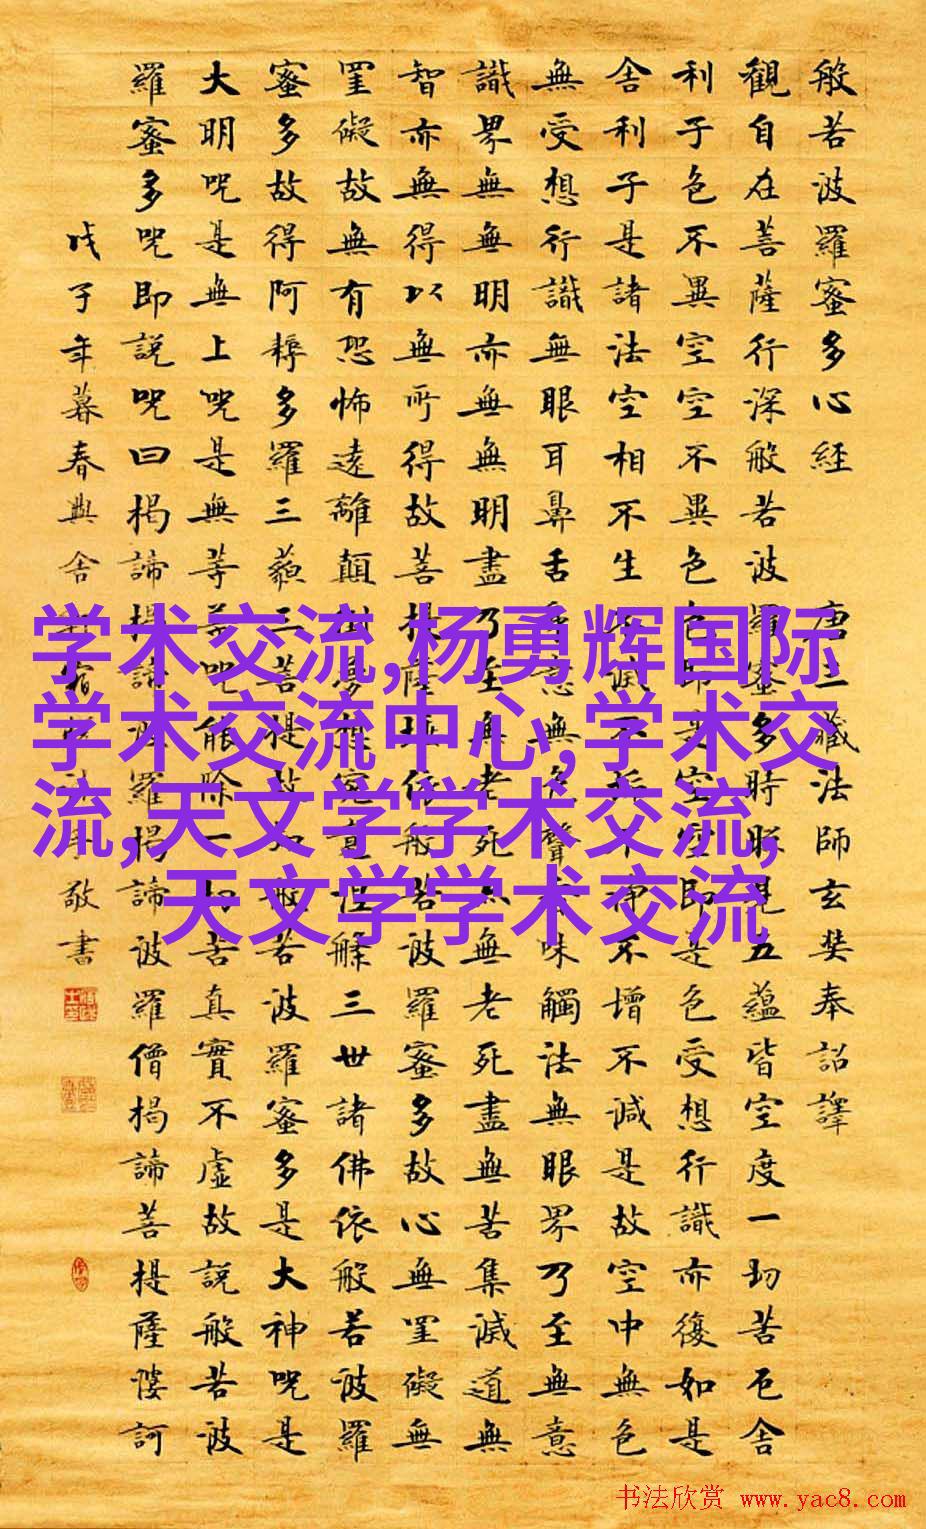 般若波羅蜜多心經 唐三藏法師玄奘奉詔譯
觀自在菩薩行深般若波羅蜜多時照見五蘊皆空度一切苦厄舍
利子色不異空空不異色色即是空空即是色受想行識亦復如是
舍利子是諸法空相不生不滅不垢不淨不增不減是故空中無色
無受想行識無眼耳鼻舌身意無色聲香味觸法無眼界乃至無意
識界無無明亦無無明盡乃至無老死亦無老死盡無苦集滅道無
智亦無得以無所得故菩提薩埵依般若波羅蜜多故心無罣礙無
罣礙故無有恐怖遠離顛倒夢想究竟涅槃三世諸佛依般若波羅
蜜多故得阿耨多羅三藐三菩提故知般若波羅蜜多是大神呪是
大明呪是無上呪是無等等呪能除一切苦真實不虛故說般若波
羅蜜多呪即說呪曰揭諦揭諦波羅揭諦波羅僧揭諦菩提薩婆訶
戊子年暮春 敬書
学术交流,杨勇辉国际
学术交流中心,学术交
流,天文学学术交流,
天文学学术交流
书法欣赏 www.yac8.com